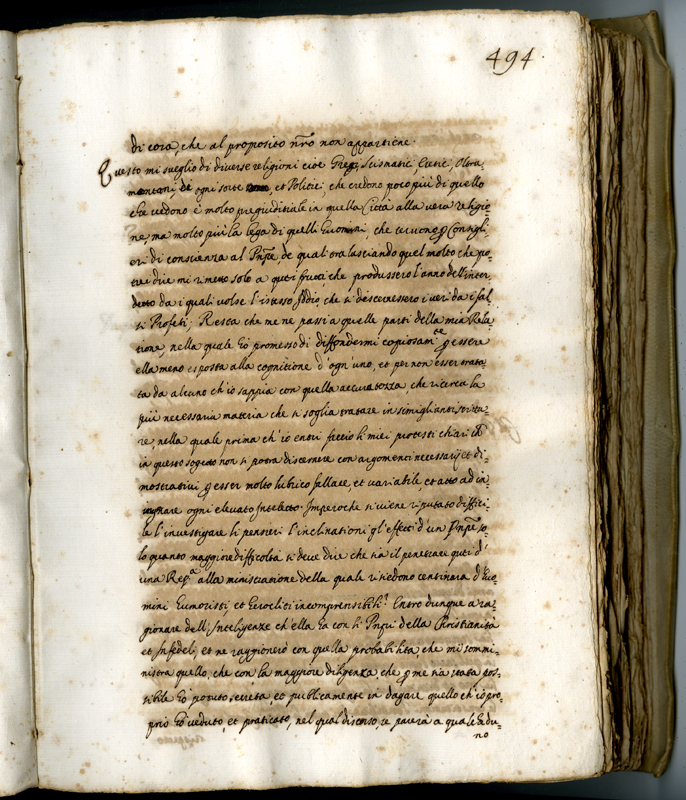 494.
di cora, che al proposito nr̃o non appartiene.
Questo miseglio di diverse religioni cioè Greci, Scismatici, Eretici, Oltra=
montani, de ogni sorte et Politici che credono poco più di quello
che vedono è molto pregiuditiale in quella Città alla vera religio=
ne, ma molto più la lega di quelli Huomini, che servono ꝑ Consigli=
eri di conscienza al Pnpe, de quali hora lasciando quel molto che po=
trei dire mi rimetto solo a quei frutti, che produssero l'anno dell'inter=
detto da i quali volse l'istesso Iddio, che si discernessero i veri da i fal=
si Profeti; Resta che me ne passi a quelle parti della mia Rela=
tione, nella quale hò promesso di diffondermi copiosamte ꝑ essere
ella meno esposta alla cognitione d'ogn'uno, et per non esser tratta=
ta da alcuno ch'io sappia con quella accuratezza, che ricerca la
più necessaria materia che si soglia trattare in simiglianti scrittu=
re, nella quale prima ch'io entri faccio li miei protesti chiari ch
in questo sogetto non si potrà discernere con argomenti necessarij et di=
mostrativi ꝑ esser molto lubrico fallace, et variabile et atto ad in=
gannare ogni elevato Intelletto. Imperoche si viene riputato diffici=
le l'investigare li pensieri l'inclinationi gl'effetti d'un Pnpe so=
lo quanto maggiore difficoltà si deve dire che sia il penetrare quei d'
una Repca alla ministratione della quale risiedono centinara d'huo=
mini humoristi, et heroclici incomprensibili? Entro dunque a ra=
gionare dell'Inteligenze ch'ella ha con li Pnpi della Christianità
et Infedeli, et ne raggionerò con quella probabilità che mi sommi=
nistra quello, che con la maggiore diligenza che ꝑ me sia stata pos=
sibile hò potuto, secreta, et publicamente indagare quello ch'io pro=
prio hò veduto, et praticato, nel qual discorso se parerà a qualch'edu=
no